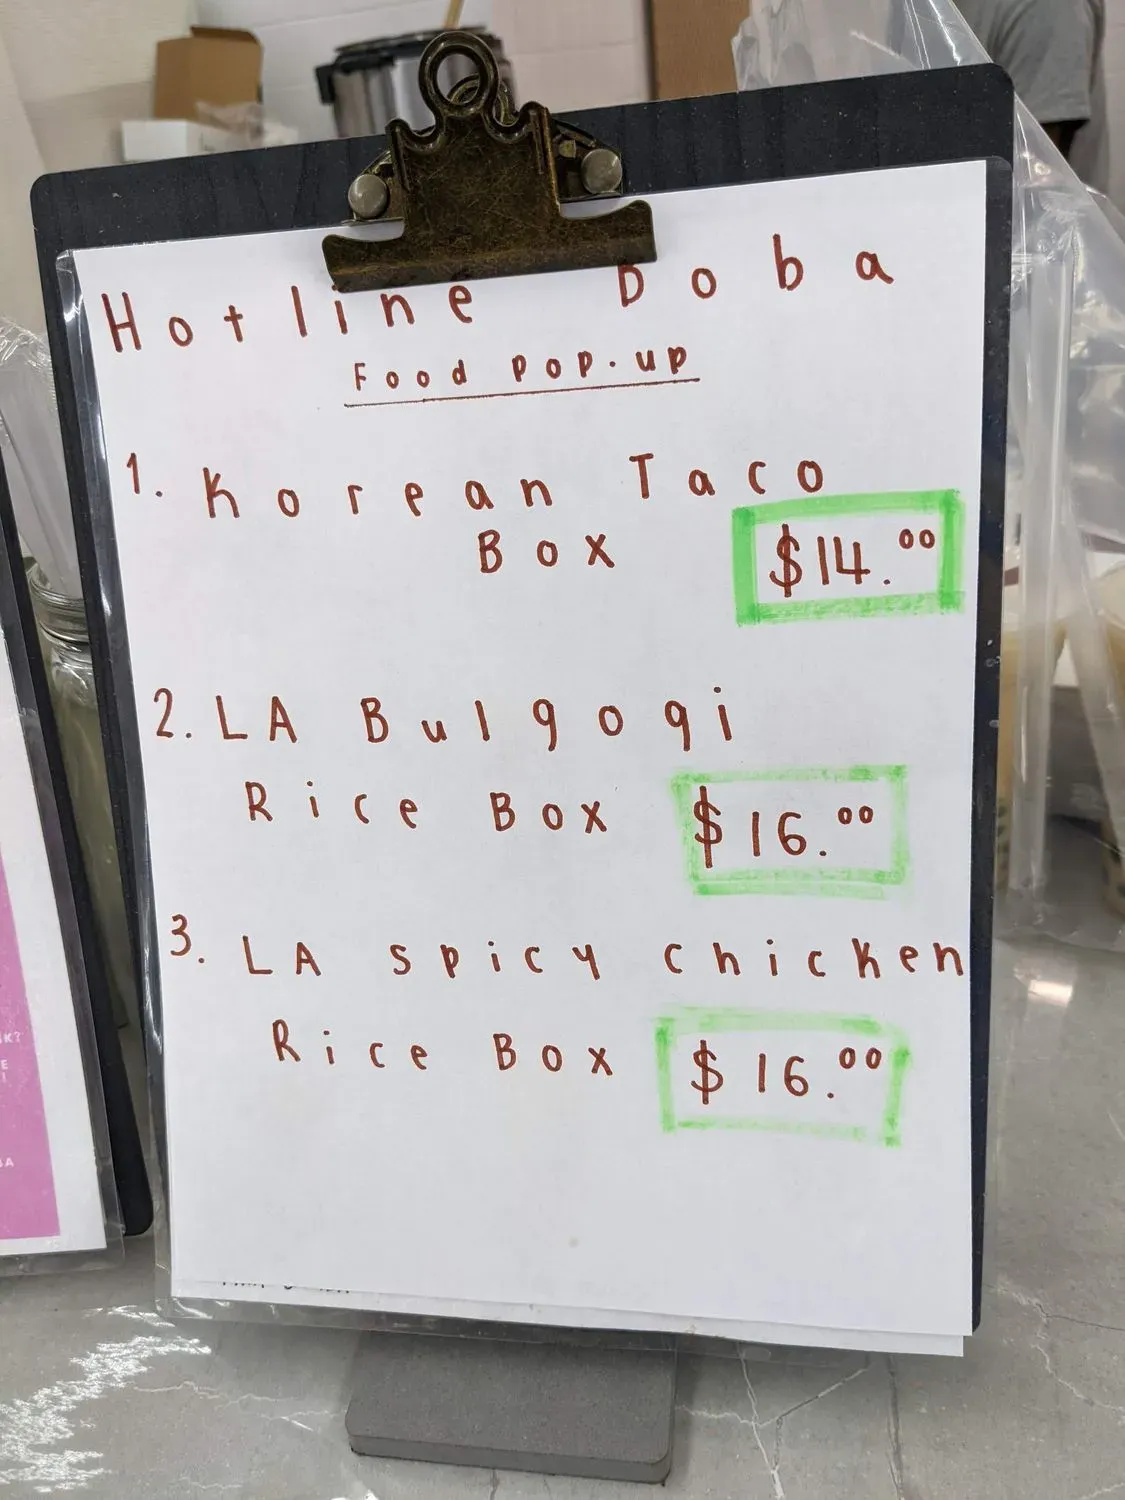 Hotline Boba
Food Pop-up
1. Korean Taco
Box $14.00
2. LA Bulgogi
Rice Box $16.00
3. LA spicy chicken
Rice Box $16.00
K?
E
!
BA